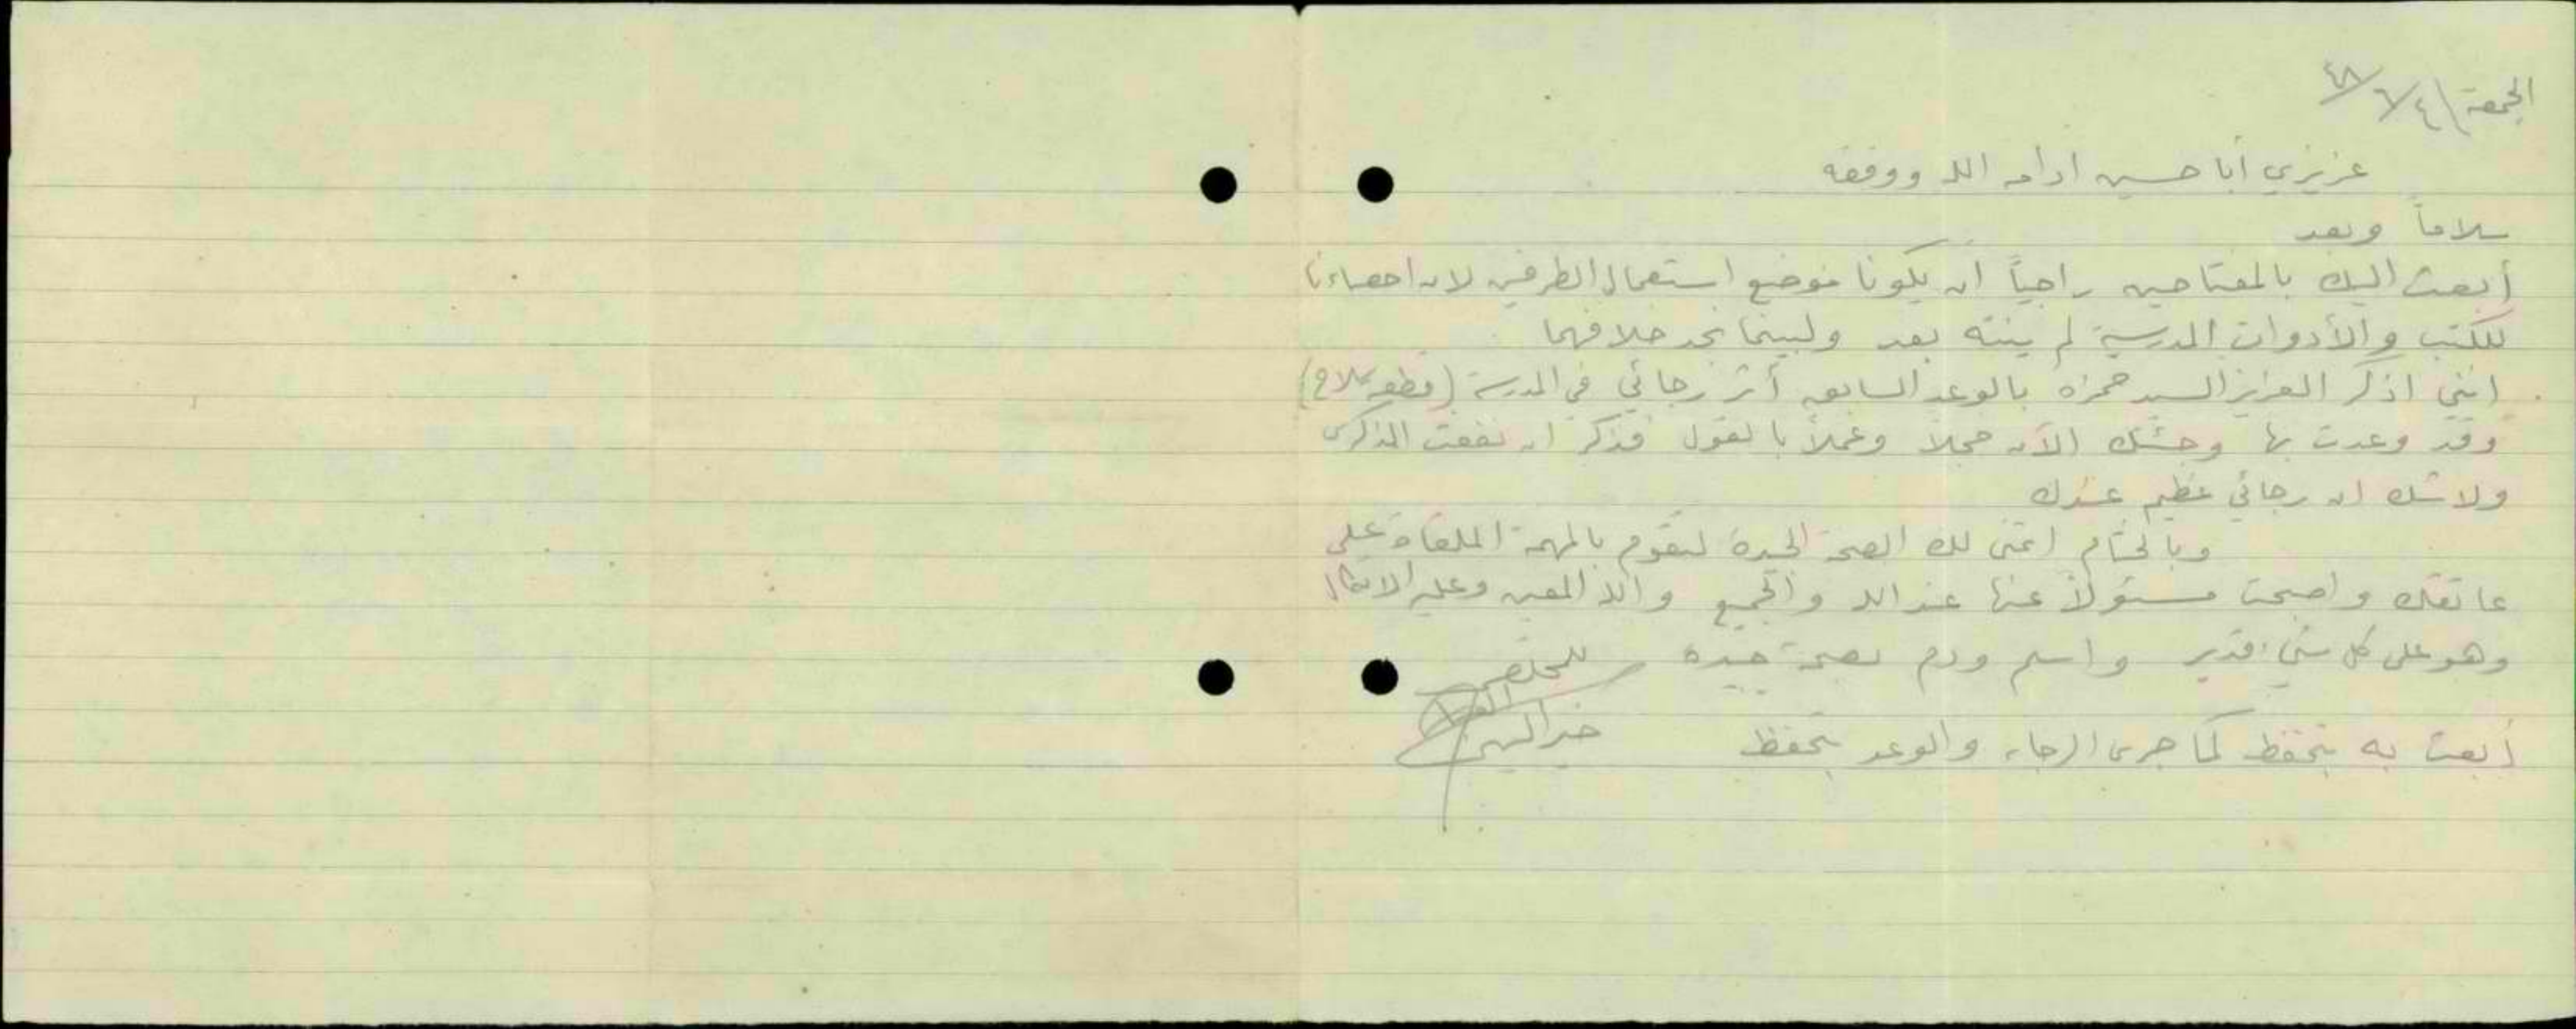 الجمعة ٤/٦/٤٨
عزيزي أبا حسين ادامه الله ووفقه
سلاماً وبعد
أبعث اليك بالمفتاحين راجياً ان يكونا موضع استعمال الطرفين لان احصاءنا
للكتب والأدوات المدرسية لم ينته بعد
انني اذكر العزيز السيد حمزه بالوعد السابق أثر رجائي في المدرسة
وقد وعدت بها وجئتك الآن وعملاً بالقول فذكر ان نفعت الذكرى
ولا شك ان رجائي عظيم عندك
وبالختام اتمنى لك الصحة الجيدة لتقوم بالمهمة الملقاة على
عاتقك واصبحت مسئولاً عنها عند الله والجميع والله المعين وعليه الاتكال
وهو على كل شيء قدير واسلم ودم بصحة جيده للمخلص
أبعث به بتحفظ كما جرى الرجاء والوعد بتحفظ